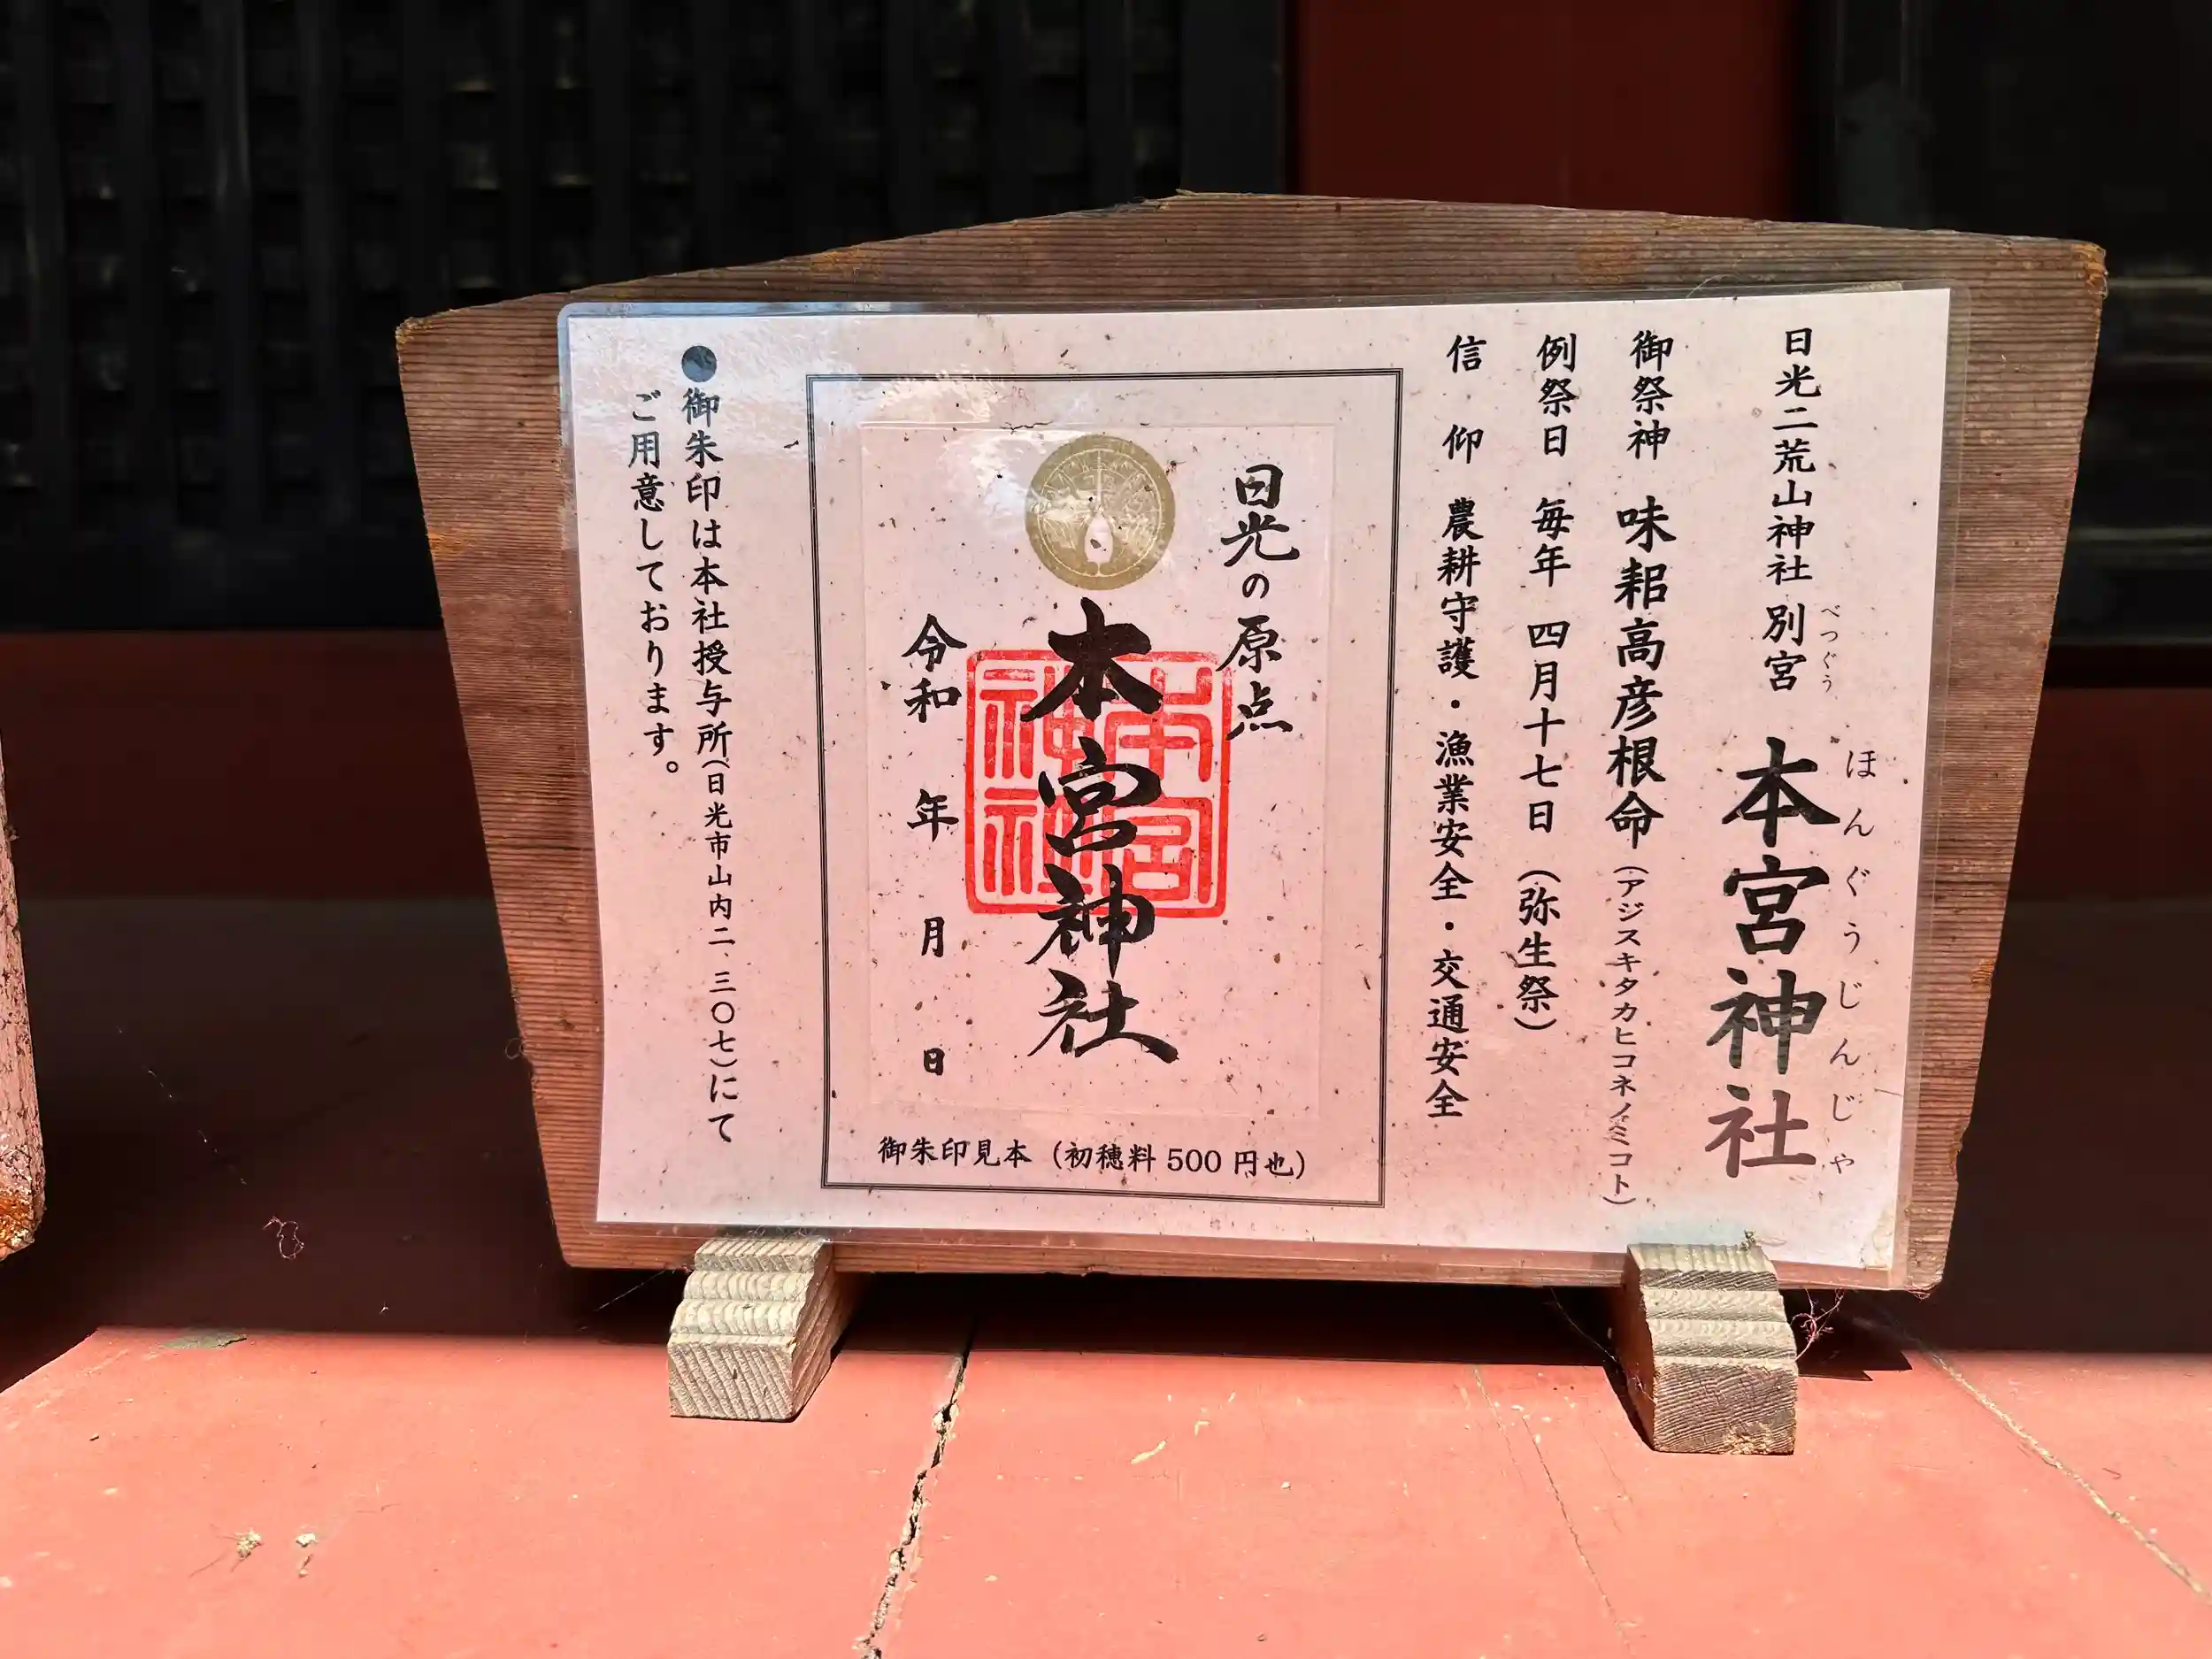 日光二荒山神社 別宮 本宮神社
べつぐう
ほんぐうじんじゃ
御祭神 味耜高彦根命(アジスキタカヒコネノミコト)
例祭日 毎年 四月十七日(弥生祭)
信仰 農耕守護・漁業安全・交通安全
日光の原点
本宮神社
本宮神社
令和 年 月 日
御朱印見本(初穂料500円也)
●御朱印は本社授与所(日光市山内二、三〇七)にて
ご用意しております。